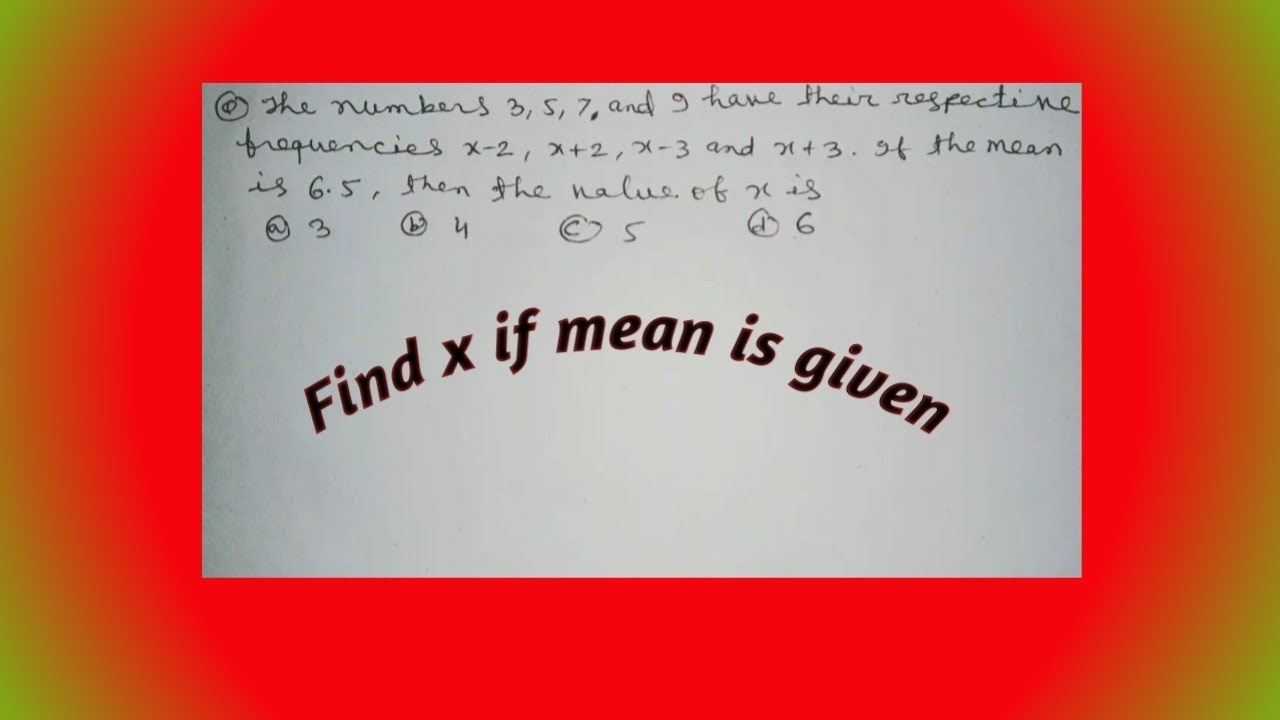 Q The numbers 3, 5, 7, and 9 have their respective
frequencies x-2, x+2, x-3 and x+3. If the mean
is 6.5, then the value of x is
(a) 3 (b) 4 (c) 5 (d) 6
Find x if mean is given